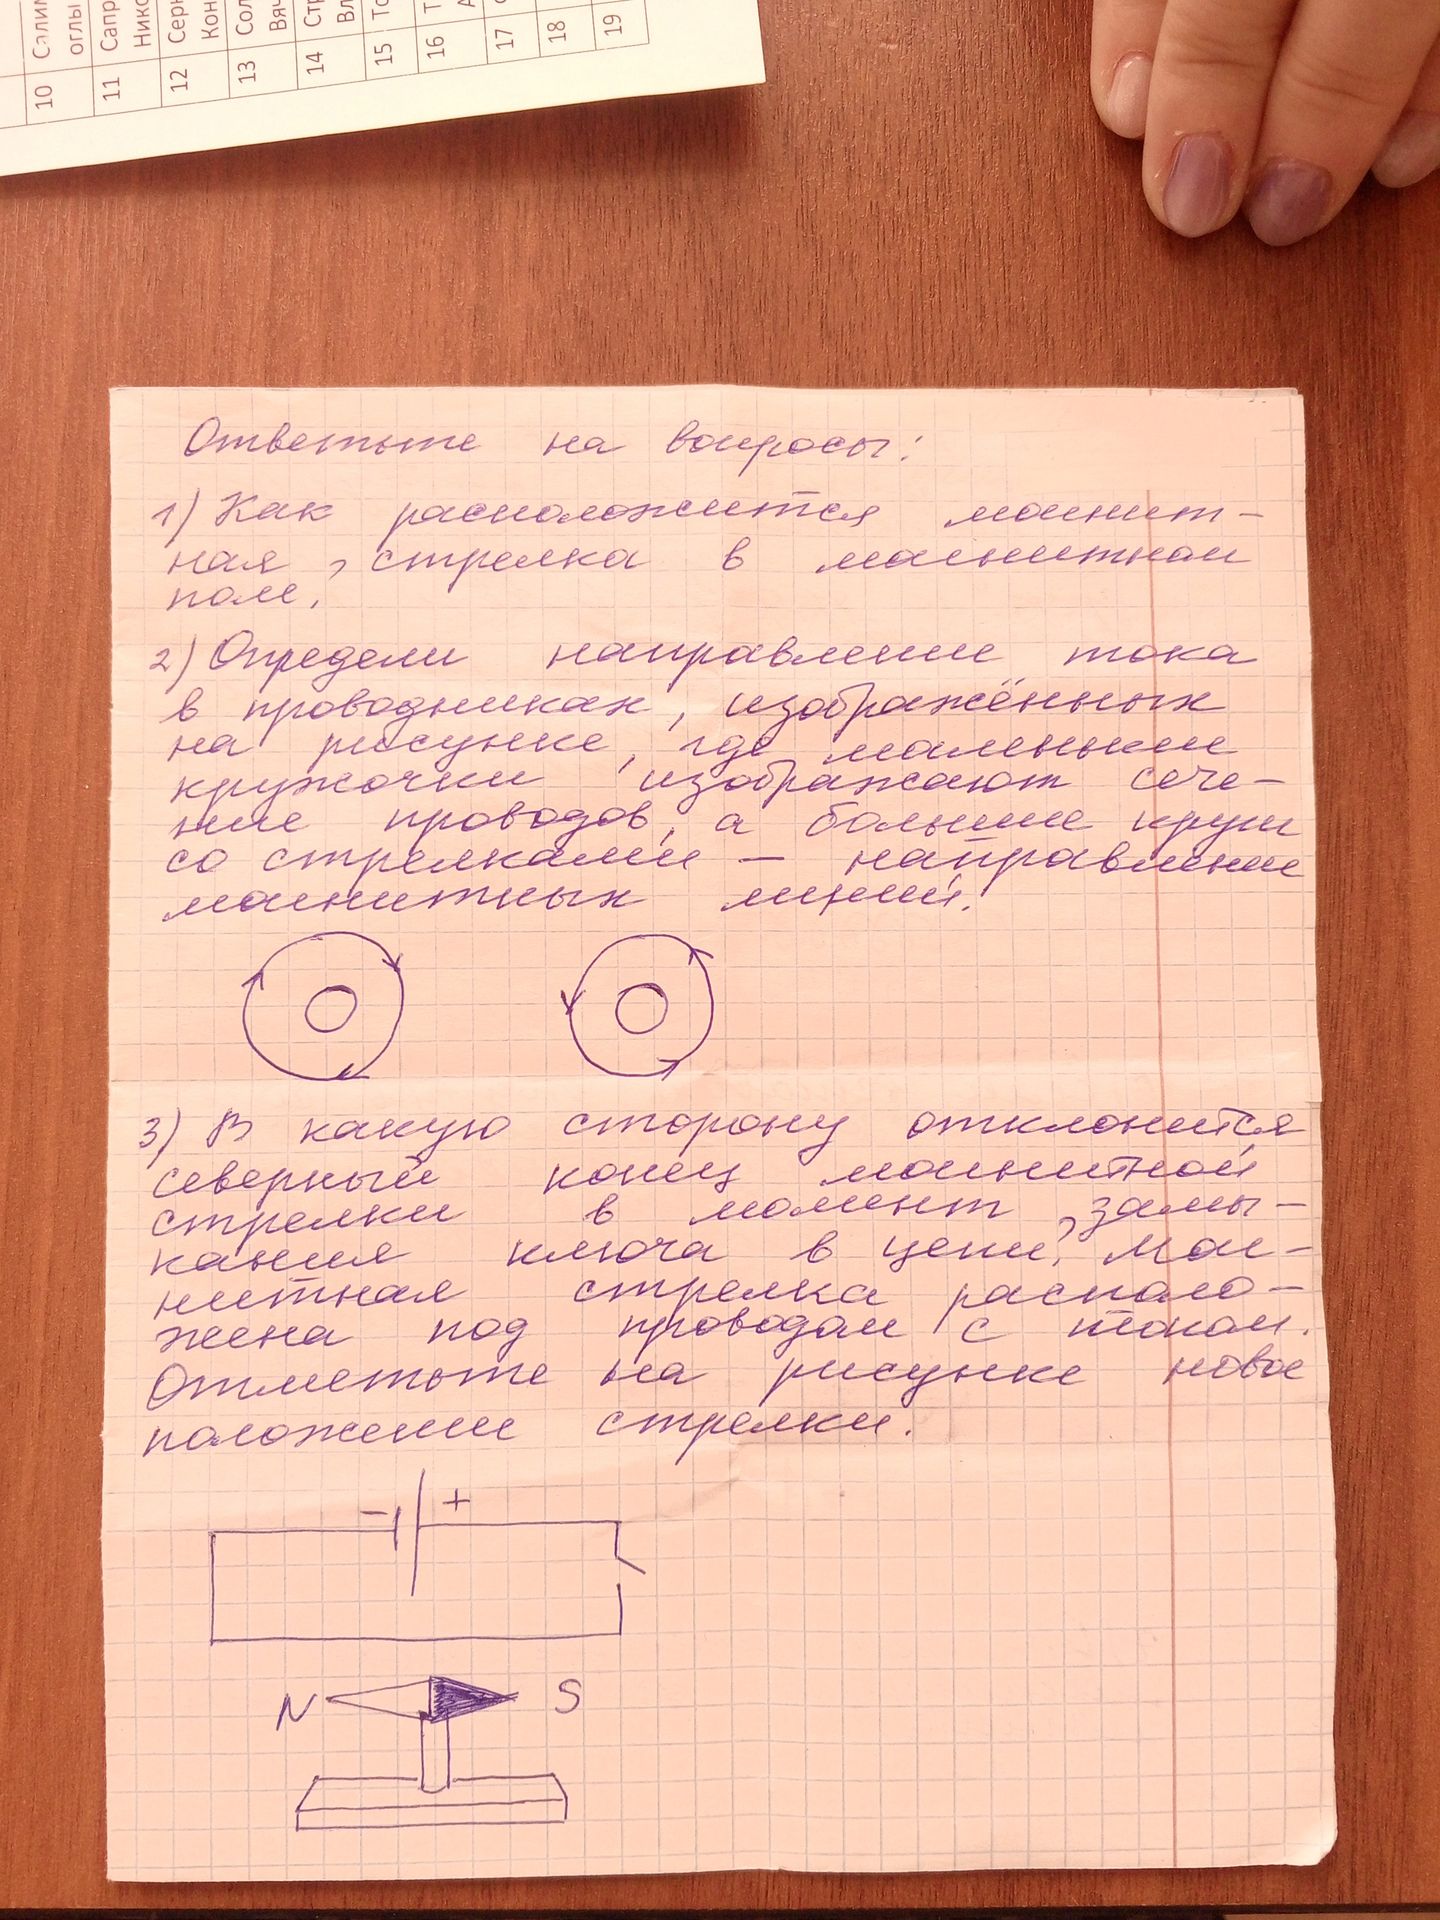 10 Салим
оглы
11 Сапр
Нико
12 Серн
Кон
13 Сол
Вяч
14 Стр
Вл
15 То
16 Т
А
17
18
19
Ответьте на вопросы:
1) Как расположится магнит-
ная стрелка в магнитном
поле.
2) Определи направление тока
в проводниках, изображённых
на рисунке, где маленькие
кружочки изображают сече-
ние проводов, а большие круги
со стрелками – направление
магнитных линий.
3) В какую сторону отклонится
северный конец магнитной
стрелки в момент замы-
кания ключа в цепи, маг-
нитная стрелка располо-
жена под проводом с током.
Отметьте на рисунке новое
положение стрелки.
- +
N S